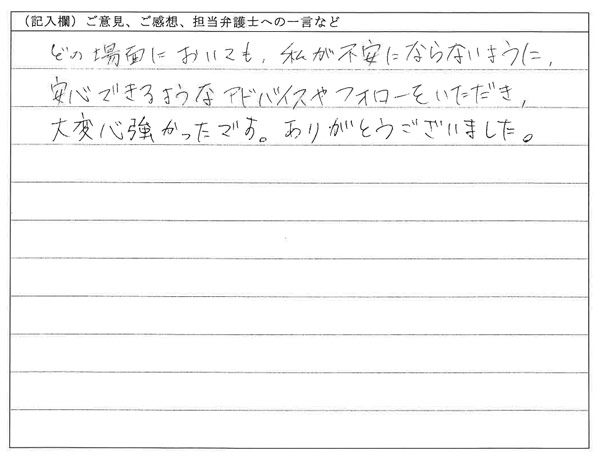 （記入欄）ご意見、ご感想、担当弁護士への一言など
どの場面においても、私が不安にならないように、
安心できるようなアドバイスやフォローをいただき、
大変心強かったです。ありがとうございました。